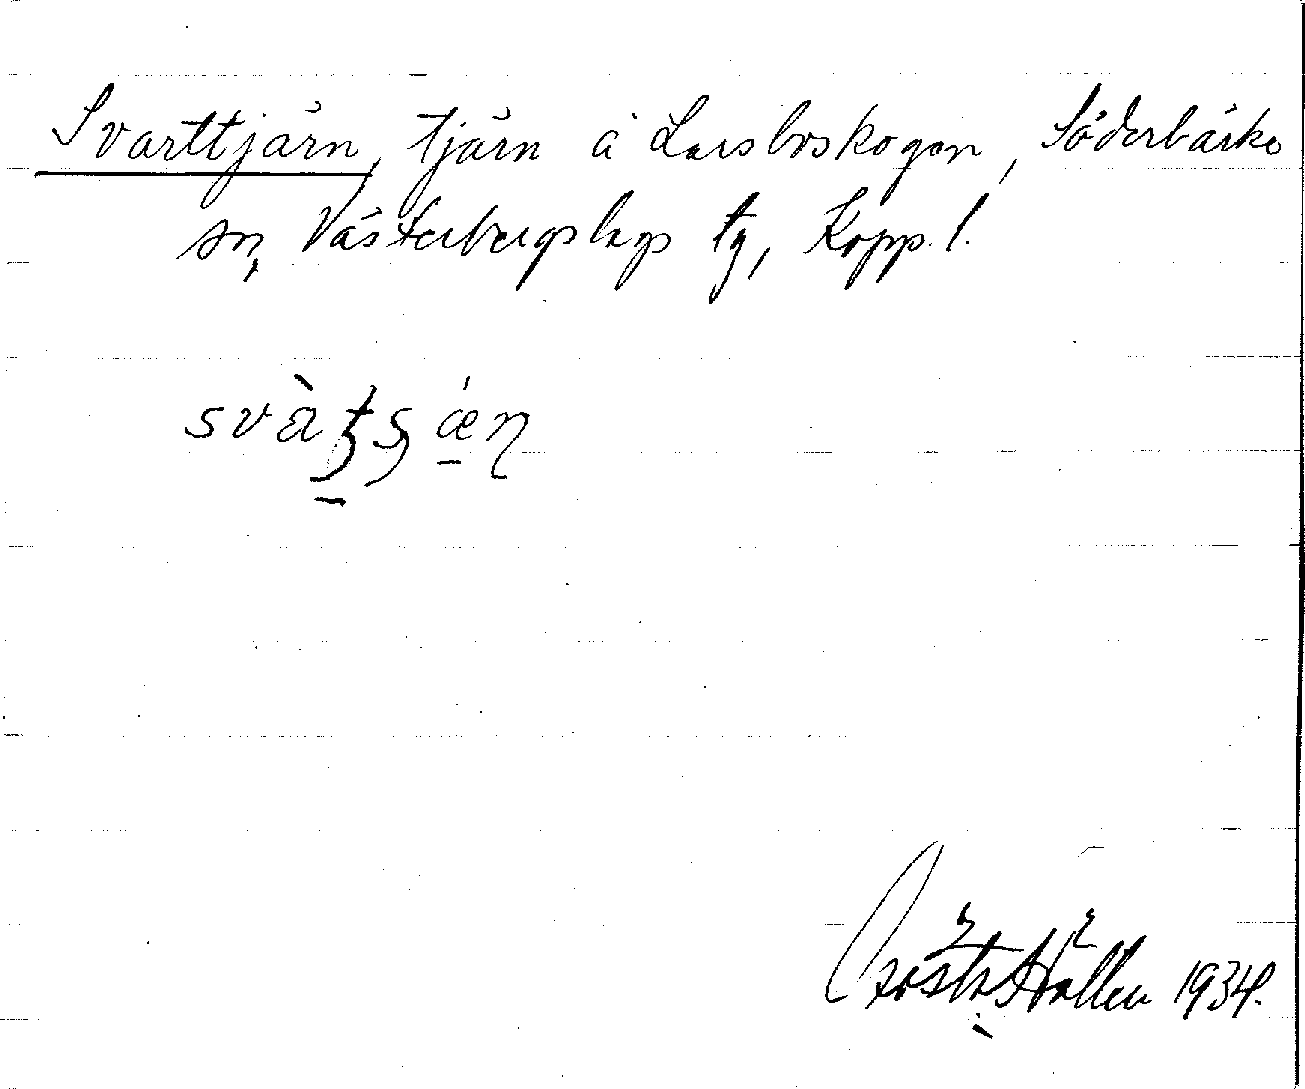 Svarttjärn, tjärn å Larsboskogen, Söderbärke
sn, Västerbergslags tg, Kopp. l.
Gösta Hallen 1934.